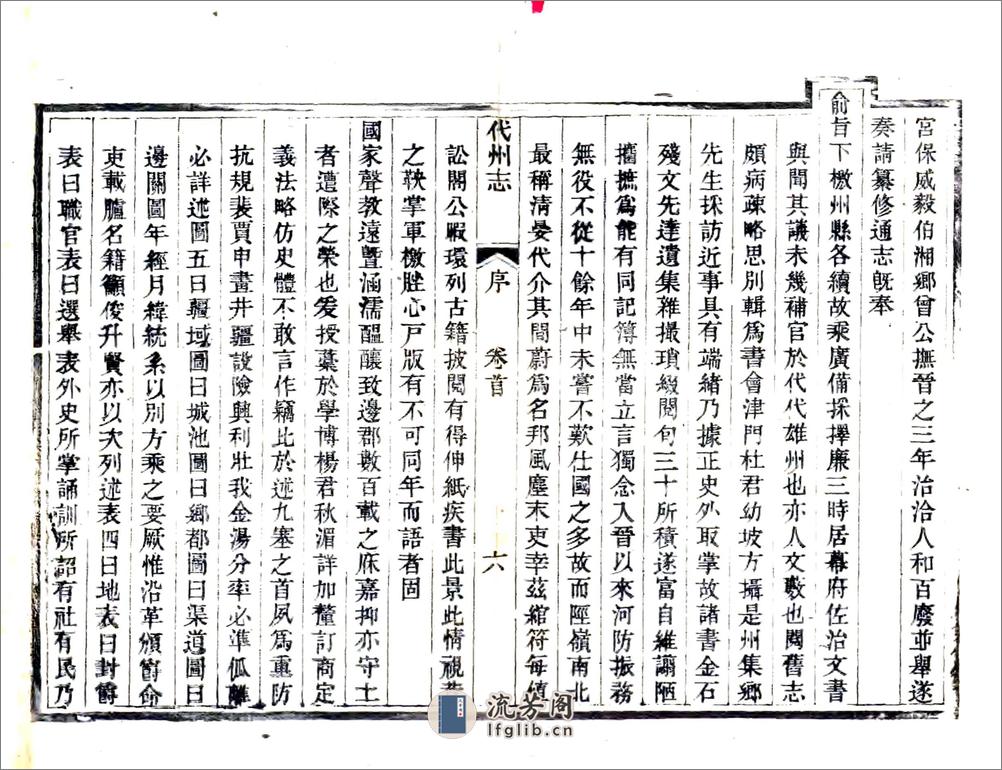 宮保威毅伯湘鄉曾公撫晉之三年治洽人和百廢並舉遂
奏請纂修通志旣奉
俞旨下檄州縣各續故乘廣備採擇廉三時居幕府佐治文書
與聞其議未幾補官於代代雄州也亦人文藪也閱舊志
頗病疎略思別輯爲書會津門杜君幼坡方攝是州集鄉
先生採訪近事具有端緒乃據正史外取掌故諸書金石
殘文先達遺集雜撮瑣綴閱旬三十所積遂富自維謭陋
攟摭爲能有同記簿無當立言獨念入晉以來河防振務
無役不從十餘年中未嘗不歎仕國之多故而陘嶺南北
最稱清晏代介其間蔚爲名邦風塵末吏幸茲綰符每值
代州志
序
卷首
六
訟閣公暇環列古籍披閱有得伸紙疾書此景此情視
之鞅掌軍檄脞心戸版有不可同年而語者固
國家聲教遠曁涵濡醞釀致邊郡數百載之庥嘉抑亦守土
者遭際之榮也爰授藁於學博楊君秋湄詳加釐訂商定
義法略仿史體不敢言作竊比於述九塞之首夙爲重防
抗規裴賈申畫井疆設險興利壯我金湯分率必準佤離
必詳述圖五曰疆域圖曰城池圖曰鄉都圖曰渠道圖曰
邊關圖年經月緯統系以別方乘之要厥惟沿革頒爵命
吏載臚名籍籲俊升賢亦以次列述表四曰地表曰封爵
表曰職官表曰選舉表外史所掌誦訓所詔有社有民乃
流芳阁
lfglib.cn